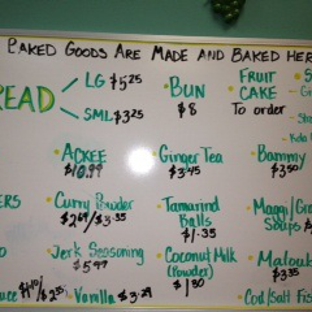 PAKED GOODS ARE MADE AND BAKED HER
READ
LG $5.25
SML $3.25
BUN
$8
FRUIT
CAKE
To order
ACKEE
$10.99
Ginger Tea
$3.45
Bammy
$3.50
ERS
Curry Powder
$2.69/$3.35
Tamarind
Balls
$1.35
Magg/Gra
Soups $
Jerk Seasoning
$5.99
Coconut Milk
(Powder)
$1.80
Malout
$3.35
uce
Vanilla $3.29
Cod/Salt Fis